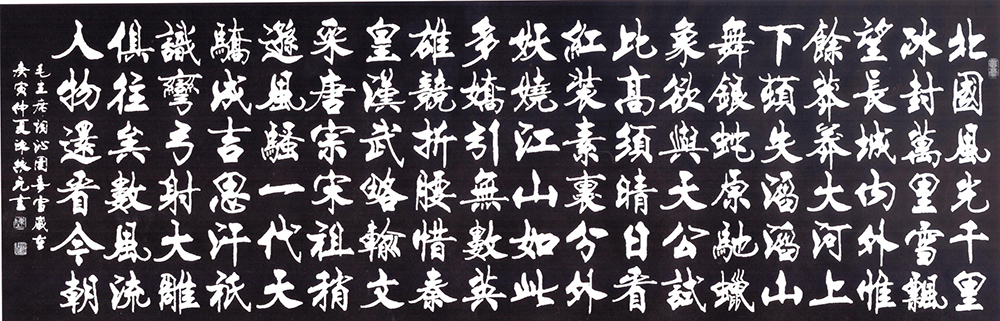 北國風光千里
冰封萬里雪飄
望長城內外惟
餘莽莽大河上
下頓失滔滔山
舞銀蛇原馳蠟
象欲與天公試
比高須晴日看
紅裝素裹分外
妖嬈江山如此
多嬌引無數英
雄競折腰惜秦
皇漢武略輸文
采唐宗宋祖稍
遜風騷一代天
驕成吉思汗祇
識彎弓射大雕
俱往矣數風流
人物還看今朝
毛主席詞沁園春雪歲在
庚寅仲夏書